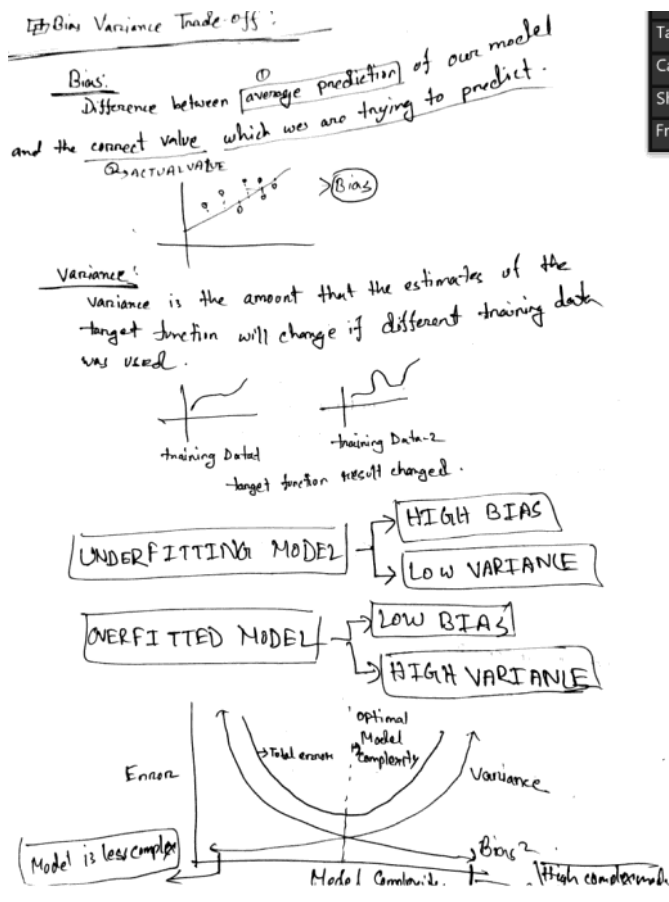 Bias Variance Trade-off:
Bias:
①
Difference between average prediction of our model
and the correct value which wes are trying to predict.
②→ACTUAL VALUE
>Bias
Variance:
Variance is the amount that the estimates of the
target function will change if different training data
was used.
training Data1
training Data-2
target function result changed.
HIGH BIAS
UNDERFITTING MODEL
LOW VARIANCE
LOW BIAS
OVERFITTED MODEL
HIGH VARIANCE
optimal
Model
complexity
→Total error
Error
Variance
Bias²
Model is less complex
Model Complexity
High complex mode
Ta
Ca
Sh
Fr